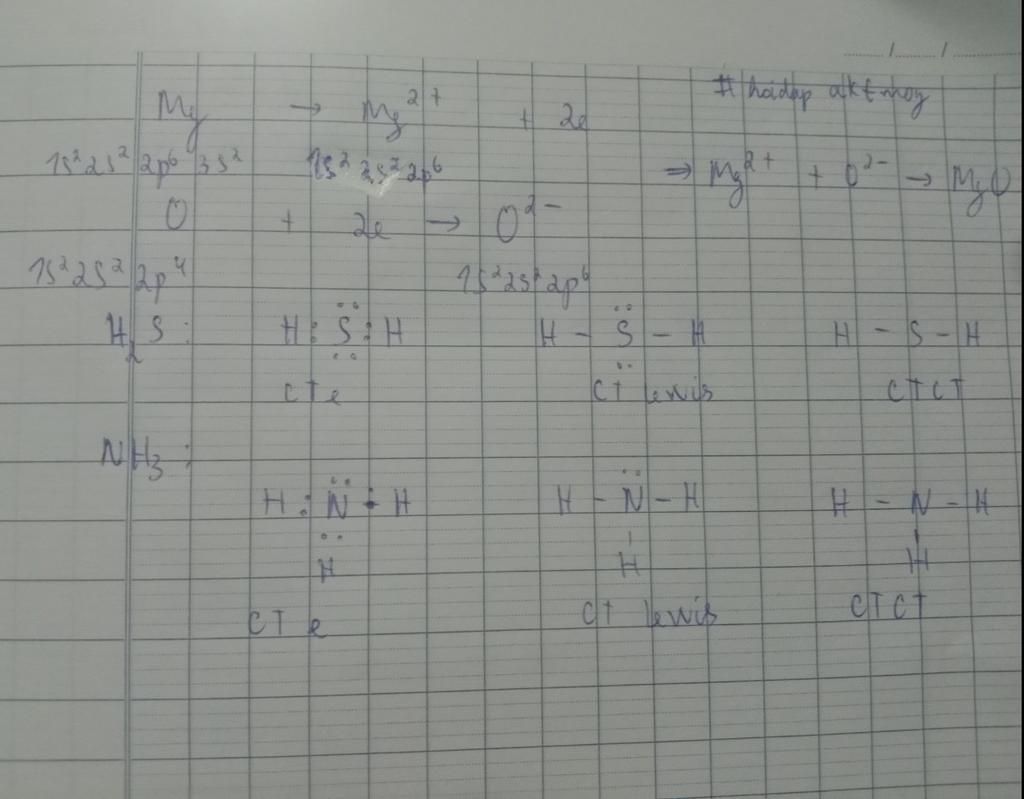 ...../...../.....
# hoidap atktmoy
Mg → Mg²⁺ + 2e
1s² 2s² 2p⁶ 3s² 1s² 2s² 2p⁶ ⇒ Mg²⁺ + O²⁻ → MgO
O + 2e → O²⁻
1s² 2s² 2p⁴ 1s² 2s² 2p⁶
H₂S: H : S : H H - S - H H - S - H
CTe CT lewis CTCT
NH₃:
H : N : H H - N - H H - N - H
H H H
CTe CT lewis CTCT